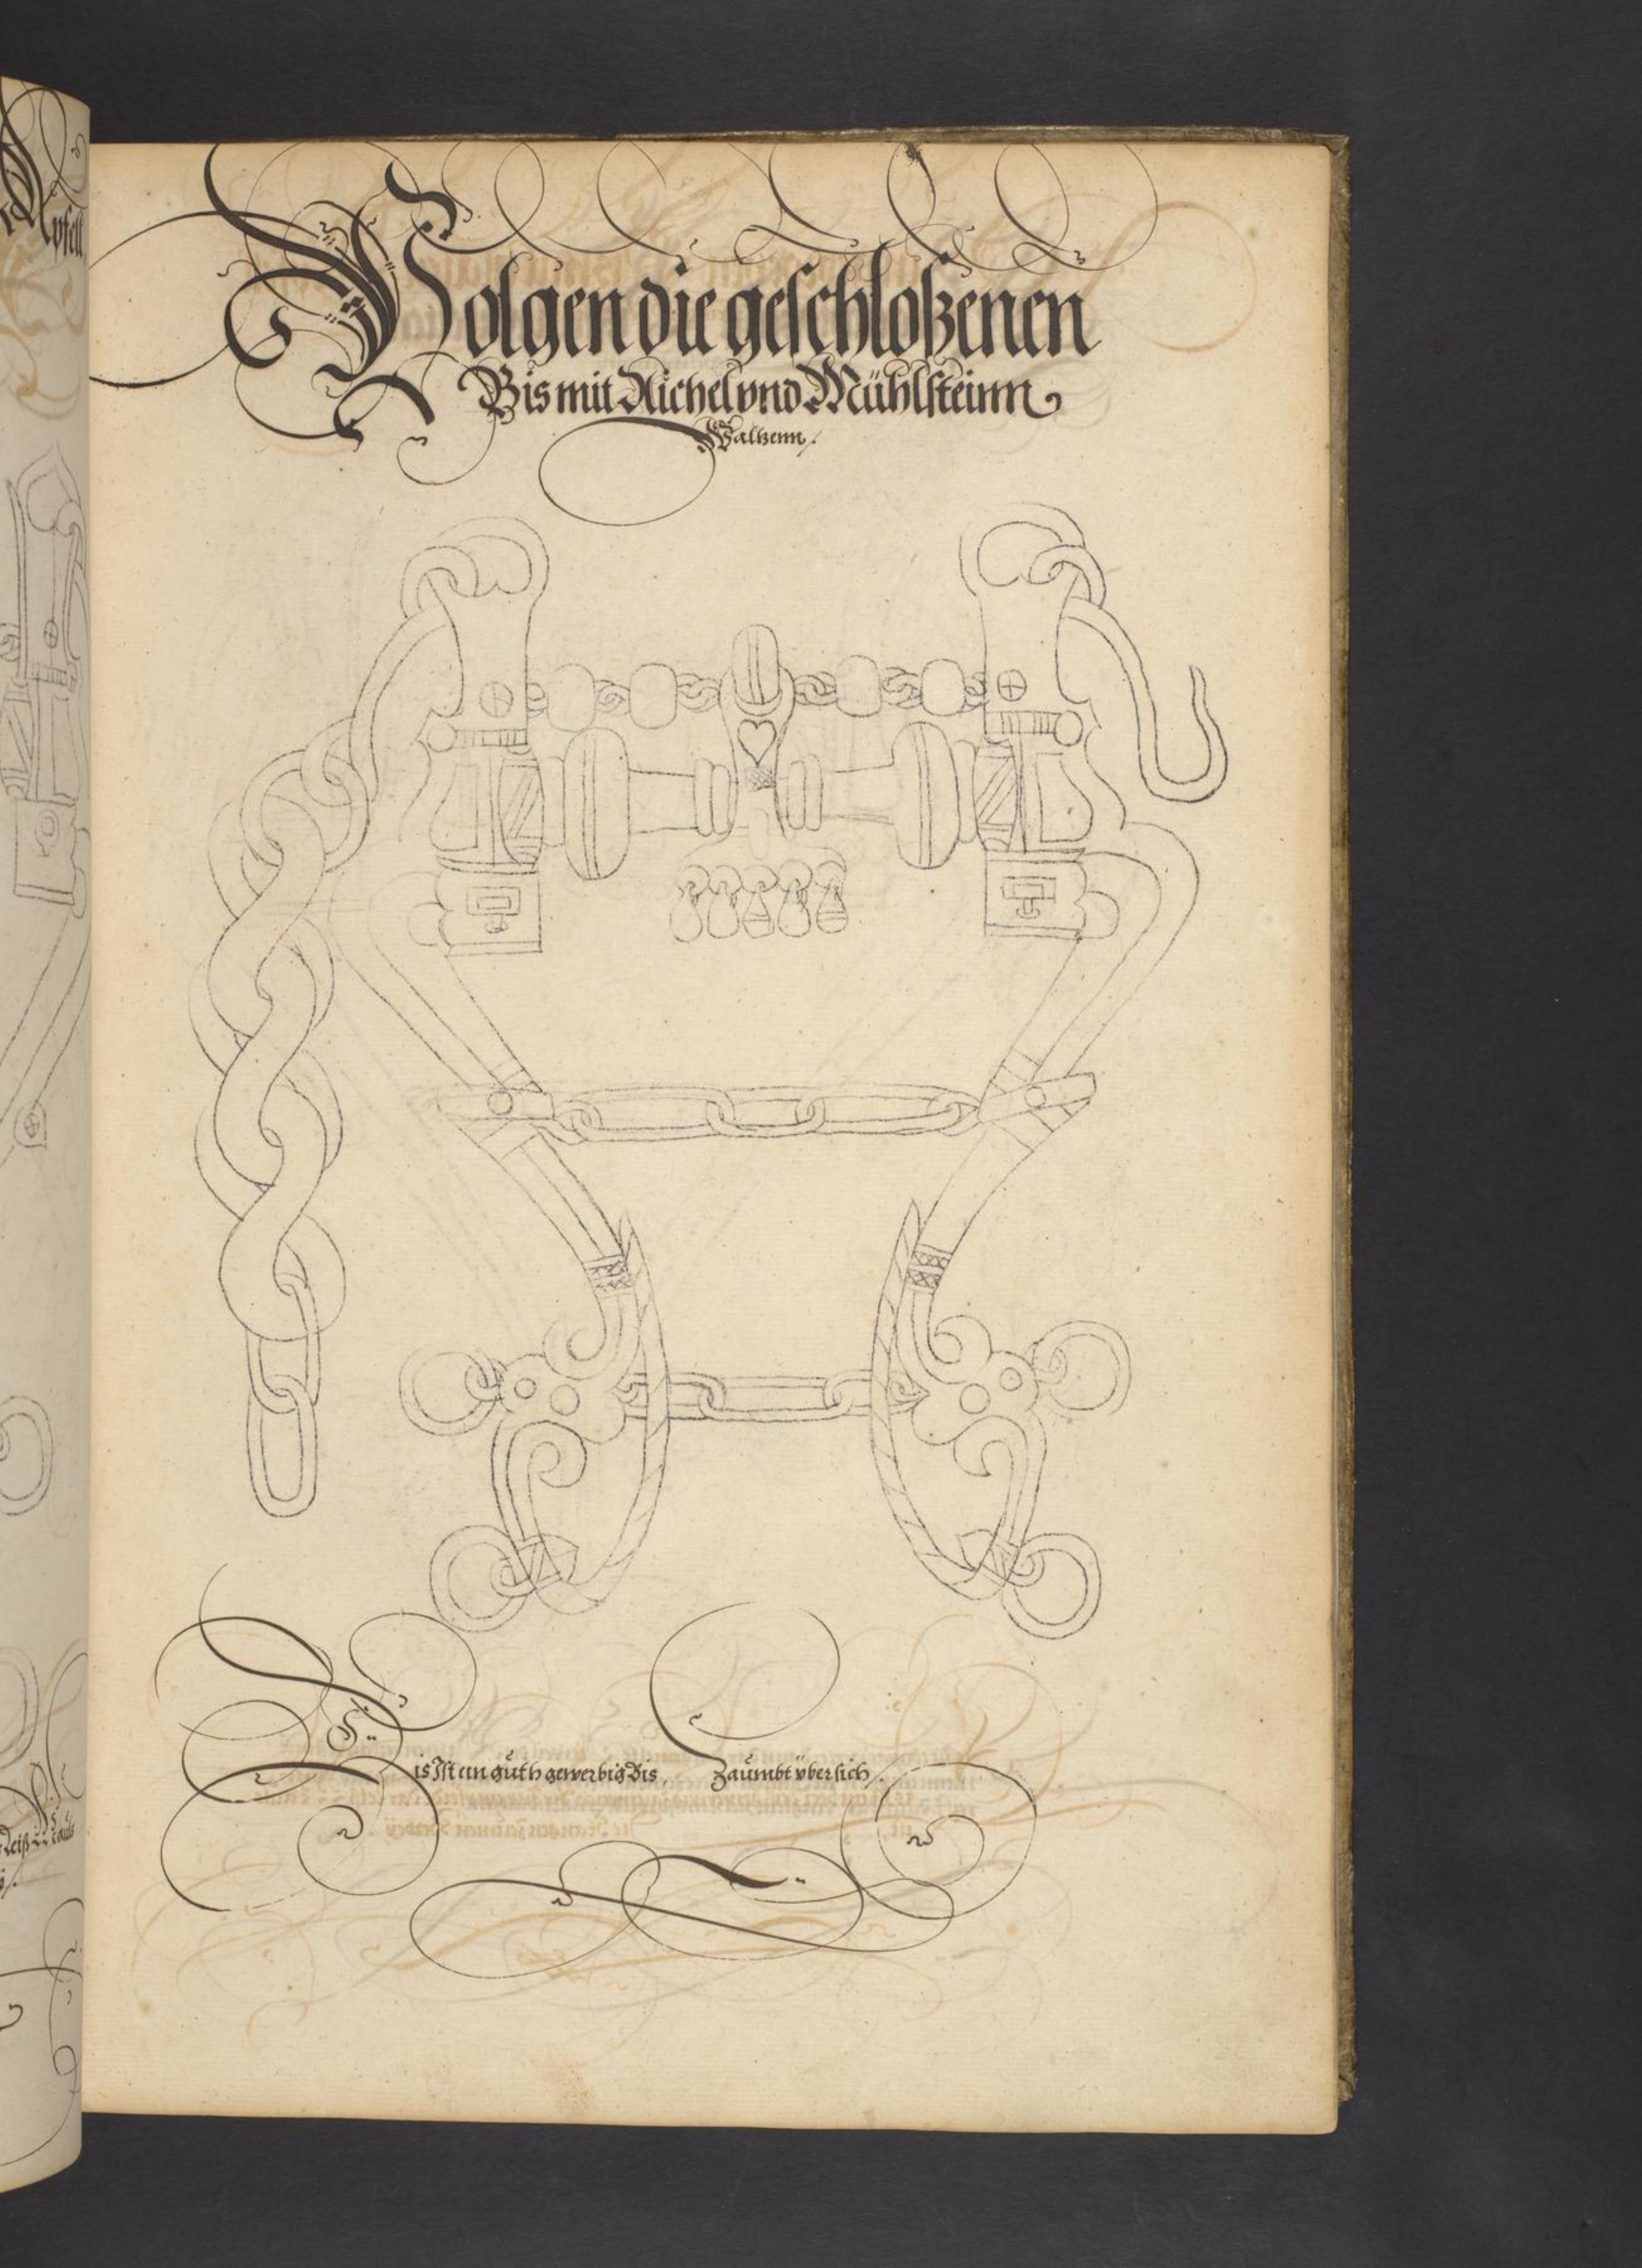 Volgen die geschloßenen
Bis mit Aichel vnd Mühlsteinn
Waltzenn.
Dis Ist ein guth gewerbig Bis, Zaumbt vber sich.